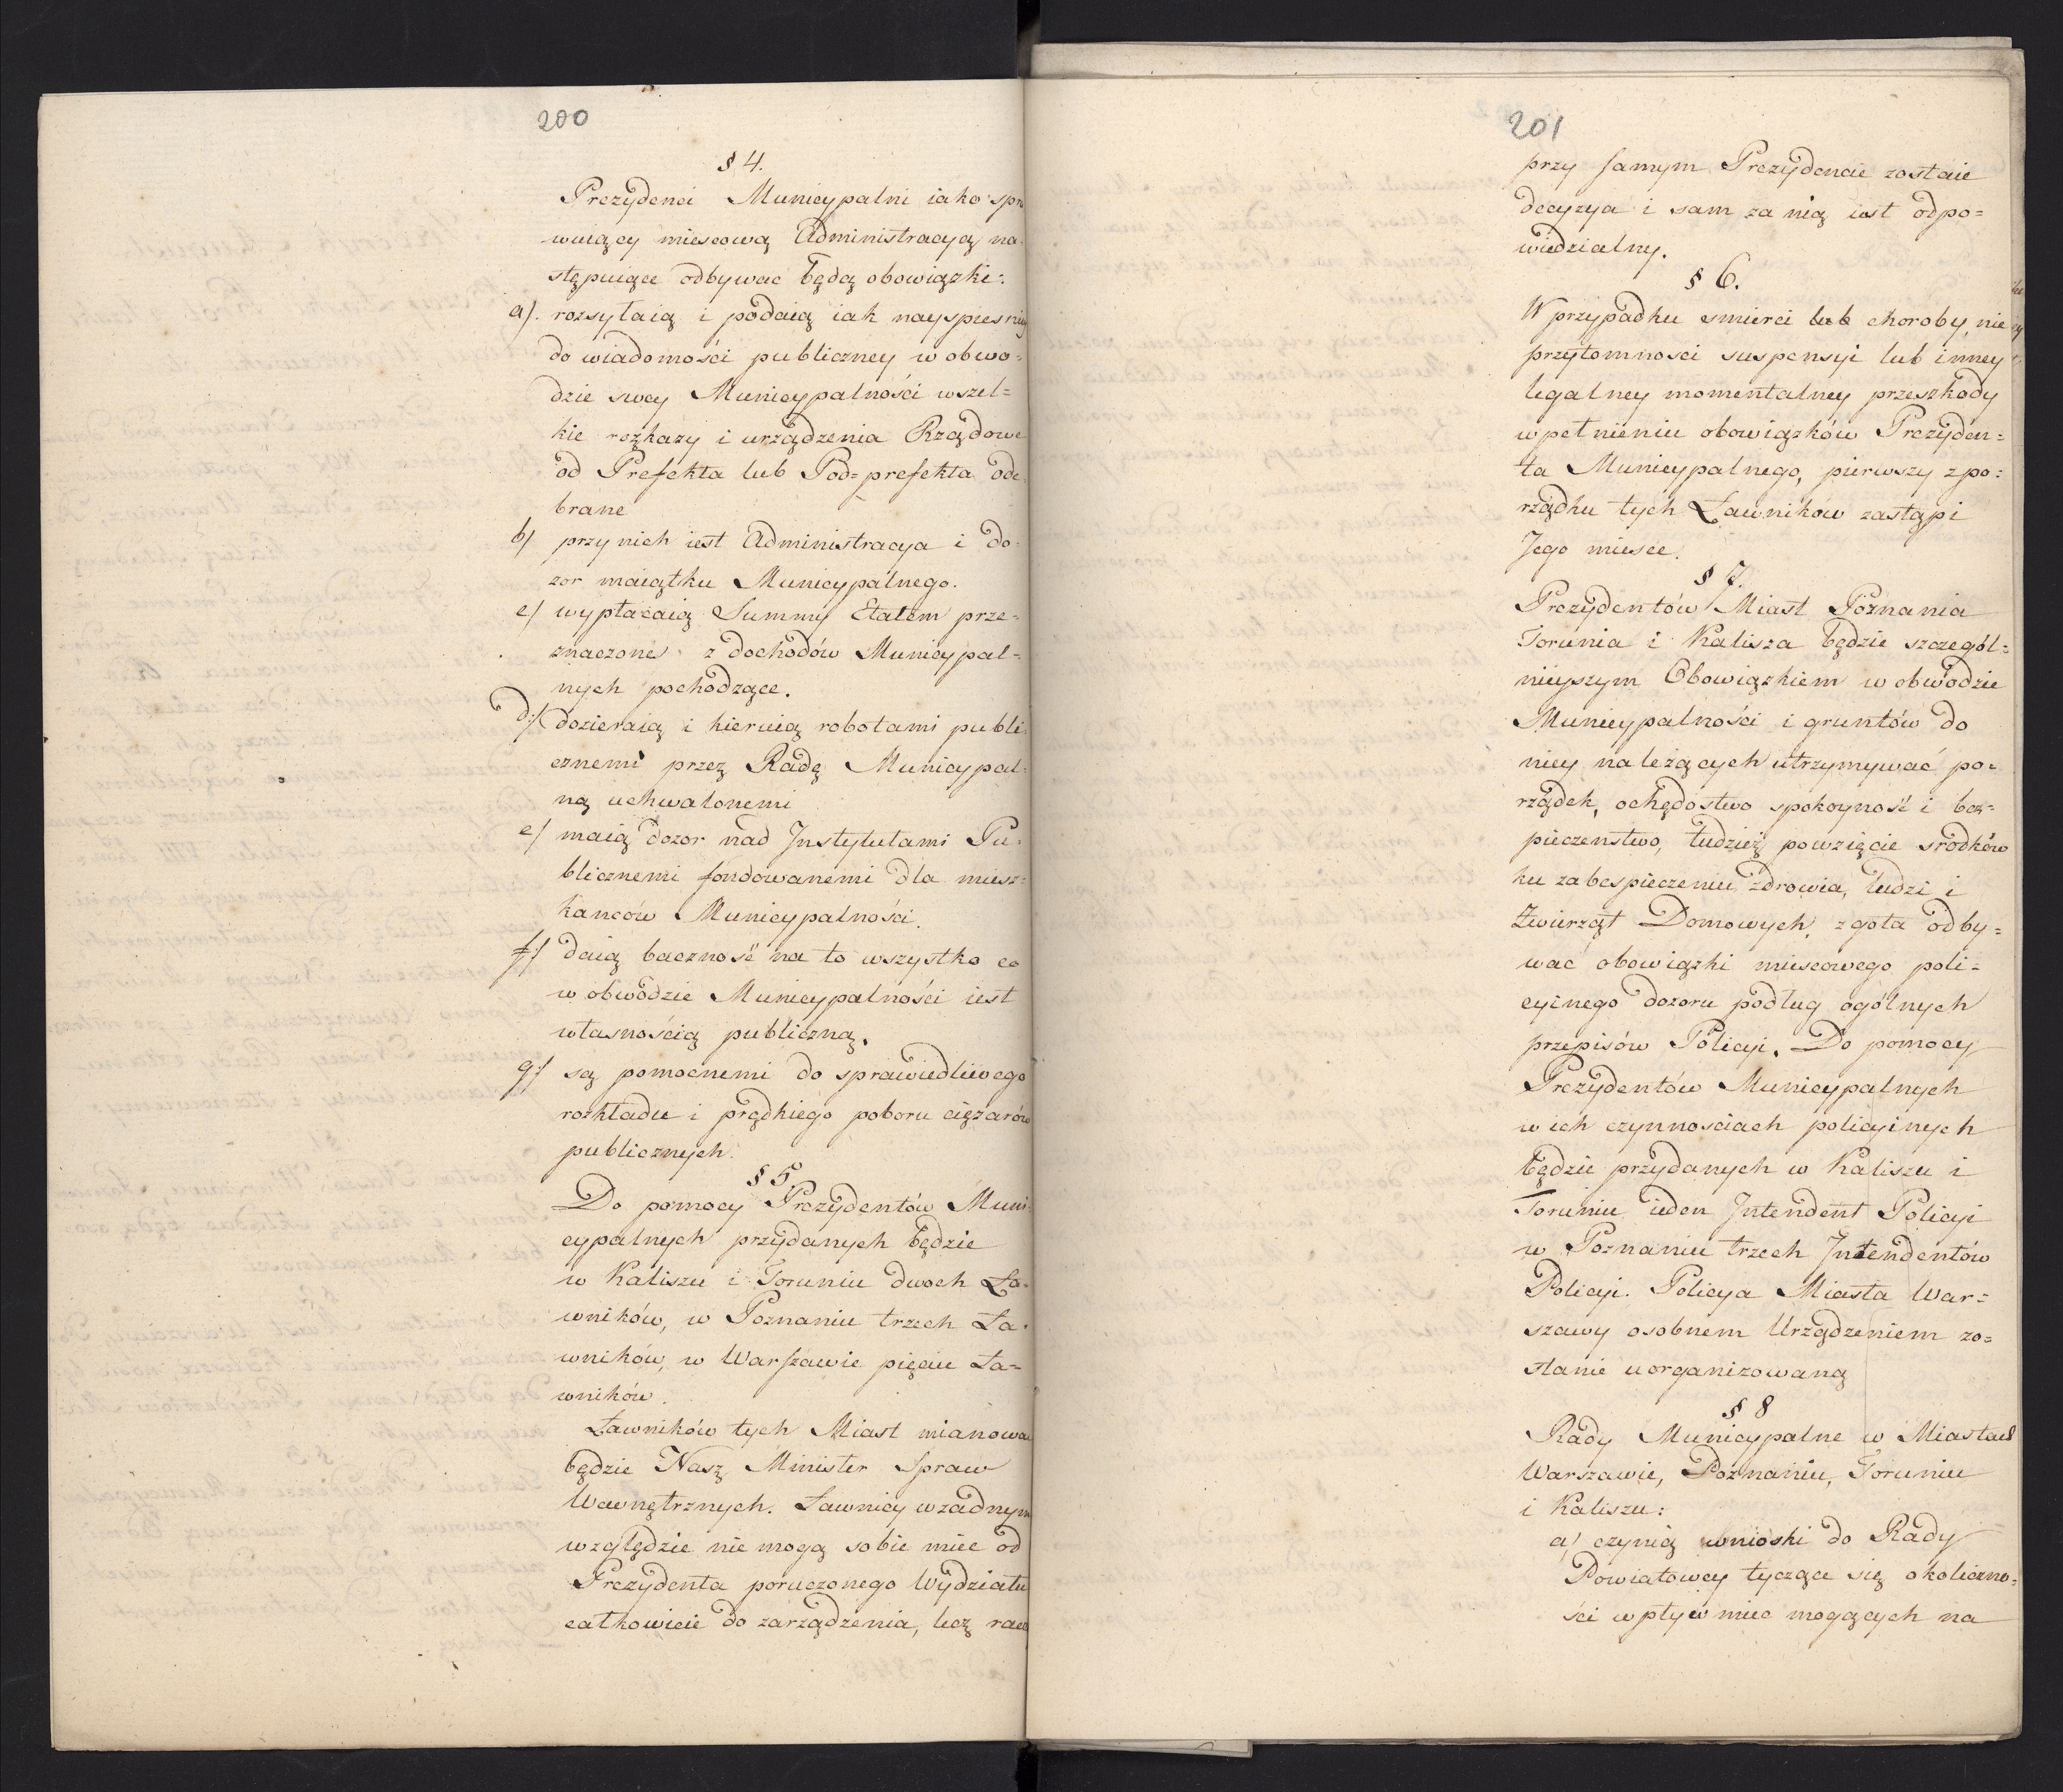 200
§ 4.
Prezydenci Municypalni iako spra
wuiący miescową Administracyą na
stępuiące odbywać będą obowiązki:
a). rozsyłaią i podaią iak nayspiesniey
do wiadomości publiczney w obwo=
dzie swey Municypalności wszel=
kie rozkazy i urządzenia Rządowe
od Prefekta lub Pod=prefekta ode
brane
b) przy nich iest Administracya i do
zor maiątku Municypalnego.
c) wypłacaią Summy Etatem prze=
znaczone z dochodów Municypal=
nych pochodzące.
d:) dozieraią i kieruią robotami publi
cznemi przez Radę Municypal=
ną uchwalonemi
e) maią dozor nad Instytutami Pu=
blicznemi fondowanemi dla miesz=
kanców Municypalności.
f:) daią baczność na to wszystko co
w obwodzie Municypalności iest
własnością publiczną.
g:) są pomocnemi do sprawiedliwego
rozkładu i prędkiego poboru ciężarów
publicznych.
§ 5.
Do pomocy Prezydentów Muni
cypalnych przydanych będzie
w Kaliszu i Toruniu dwoch Ła=
wników, w Poznaniu trzech Ła=
wników, w Warszawie pięciu Ła=
wników.
Ławników tych Miast mianować
będzie Nasz Minister Spraw
Wewnętrznych. Ławnicy w żadnym
względzie nie mogą sobie mieć od
Prezydenta poruczonego Wydziału
całkowicie do zarządzenia, lecz raczey
201
przy samym Prezydencie zostaie
decyzya i sam za nią iest odpo=
wiedzialny.
§ 6.
W przypadku smierci lub choroby, nie
przytomności suspensyi lub inney
legalney momentalney przeszkody
w pełnieniu obowiązków Prezyden=
ta Municypalnego, pierwszy z po=
rządku tych Ławników zastąpi
Jego miesce.
§ 7.
Prezydentów Miast Poznania
Torunia i Kalisza będzie szczegól=
nieyszym Obowiązkiem w obwodzie
Municypalności i gruntów do
niey należących utrzymywać po=
rządek, ochędostwo spokoyność i bez=
pieczenstwo, tudzież powzięcie srodków
ku zabespieczeniu zdrowia, ludzi i
Zwierząt Domowych, zgoła odby=
wać obowiązki miescowego poli=
cyinego dozoru podług ogólnych
przepisów Policyi. Do pomocy
Prezydentów Municypalnych
w ich czynnosciach policyinych
będzie przydanych w Kaliszu i
Toruniu ieden Intendent Policyi
w Poznaniu trzech Intendentów
Policyi. Policya Miasta War=
szawy osobnem Urządzeniem zo=
stanie uorganizowaną
§ 8
Rady Municypalne w Miastach
Warszawie, Poznaniu, Toruniu
i Kaliszu:
a) czynią wnioski do Rady
Powiatowey tyczące się okoliczno=
ści wpływ mieć mogących na